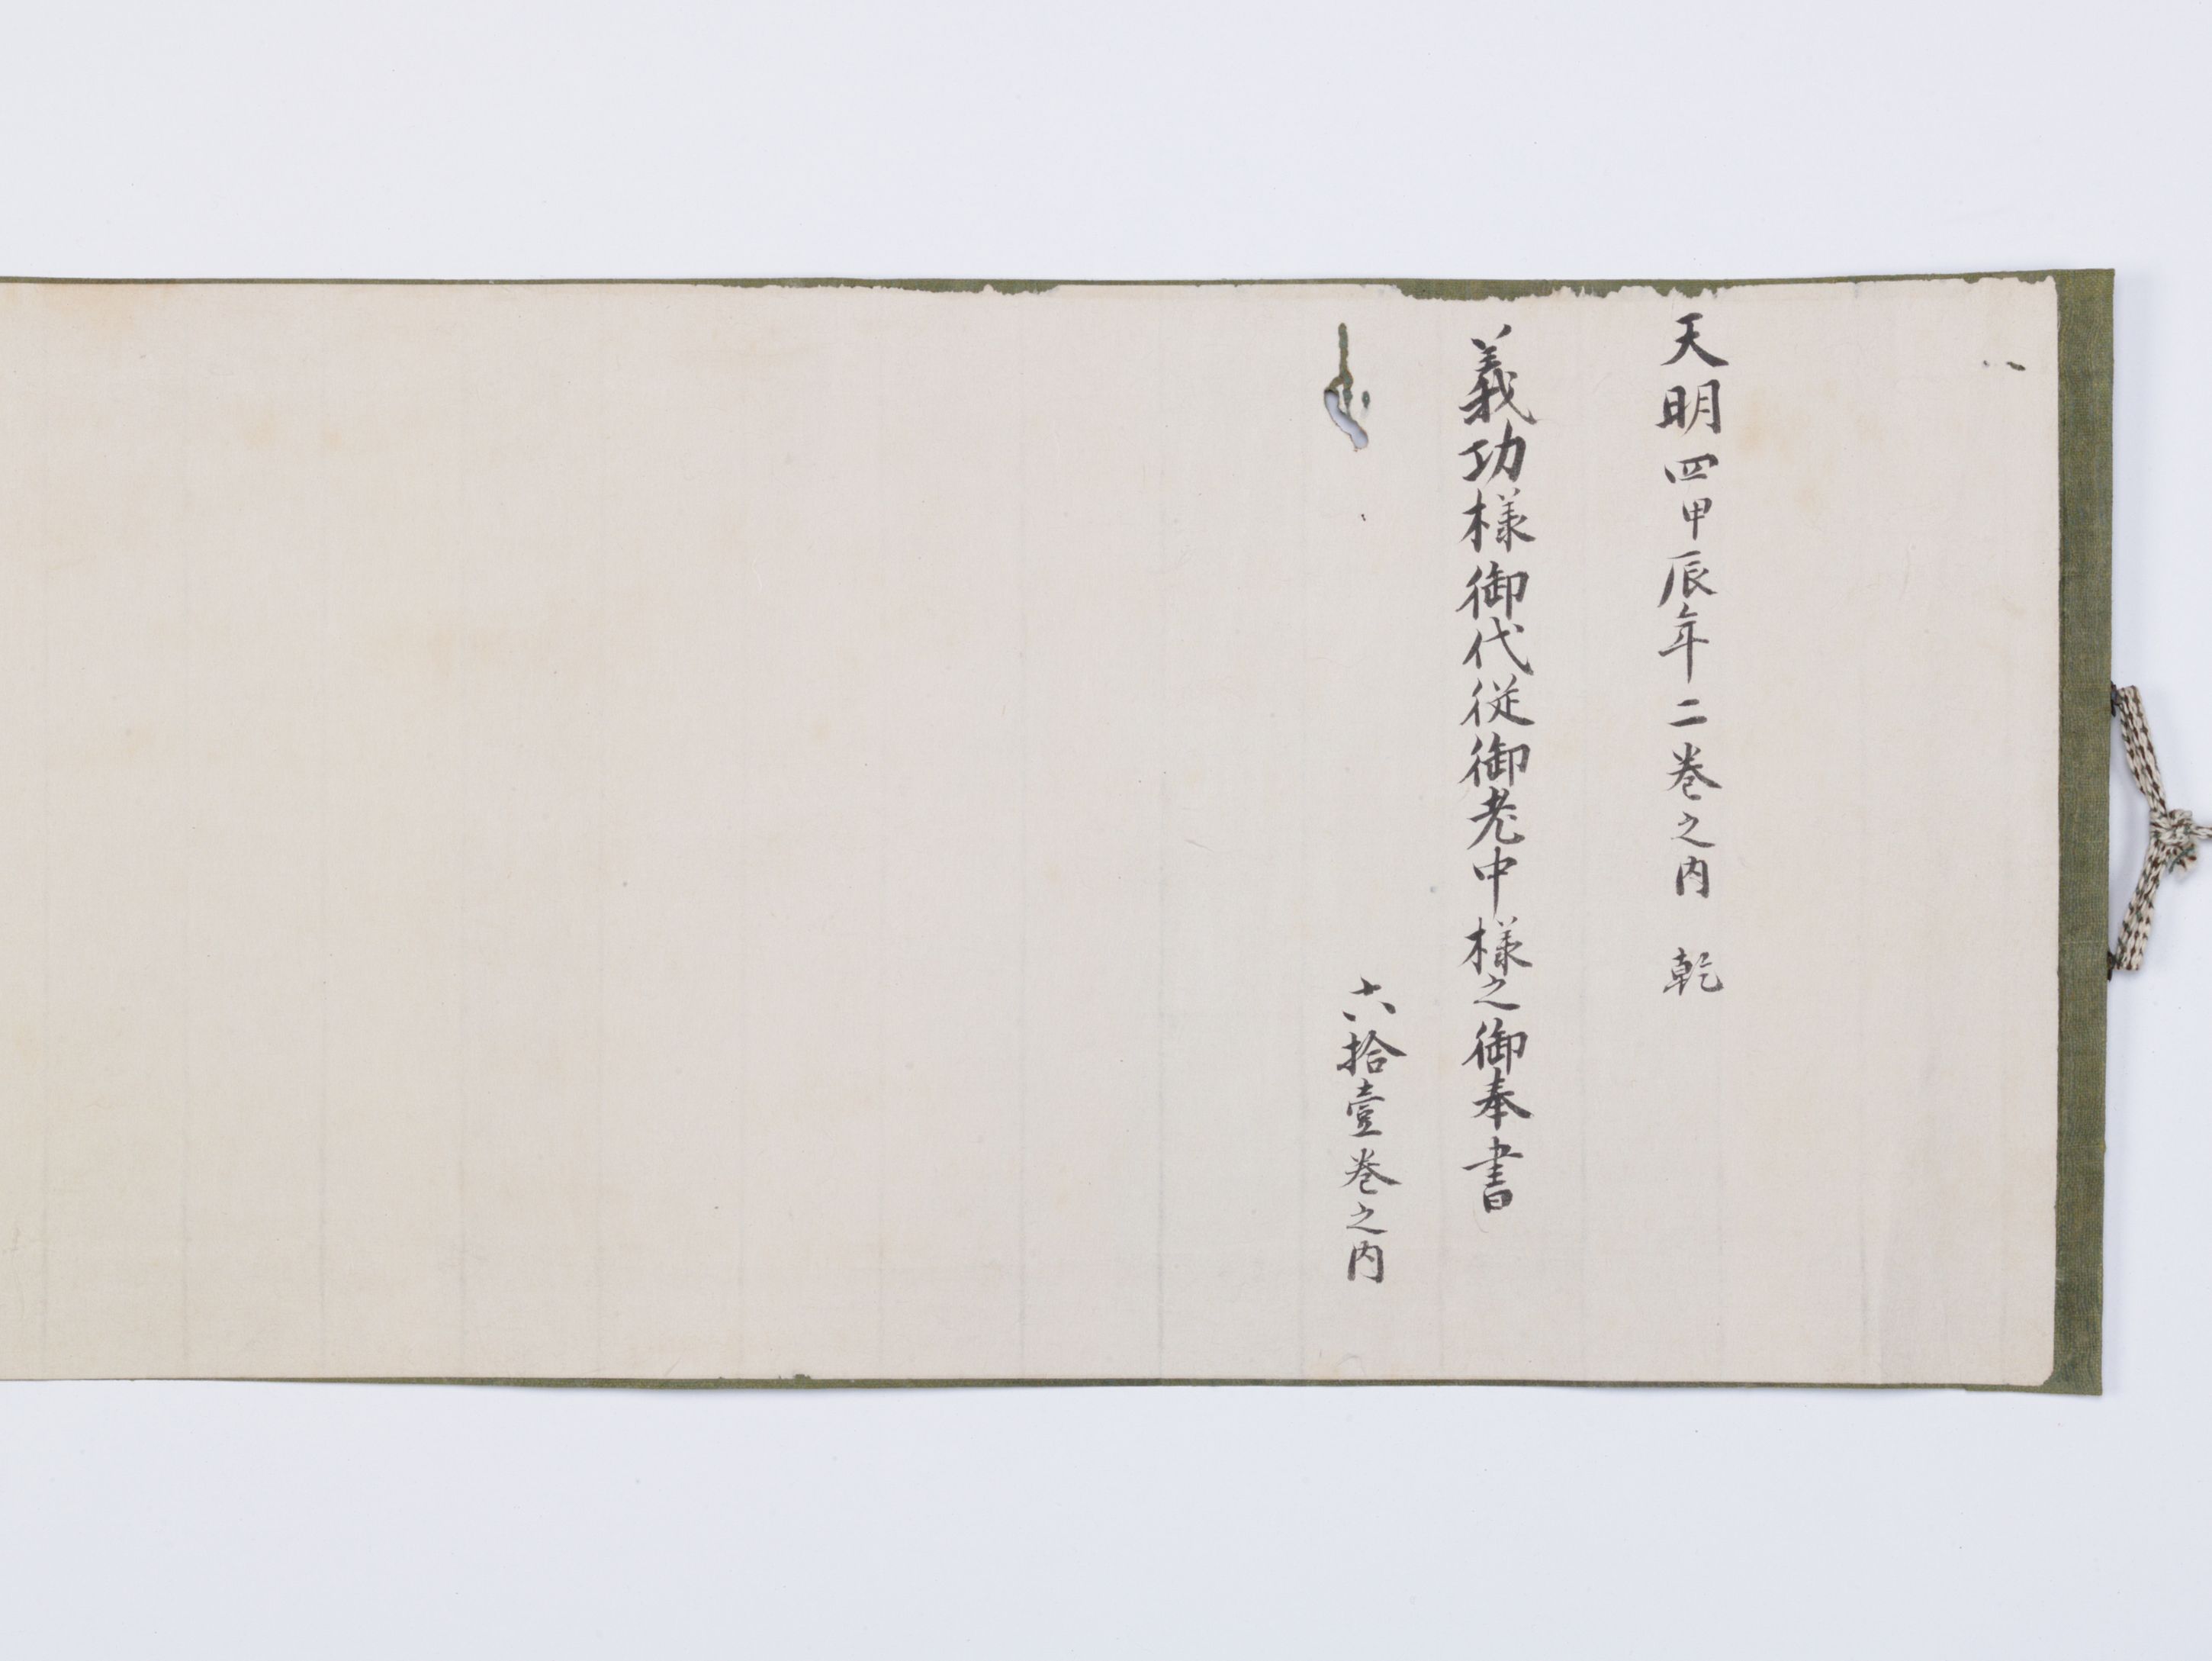 天明四甲辰年二巻之内　乾
義功様御代従御老中様之御奉書
六拾壹巻之内